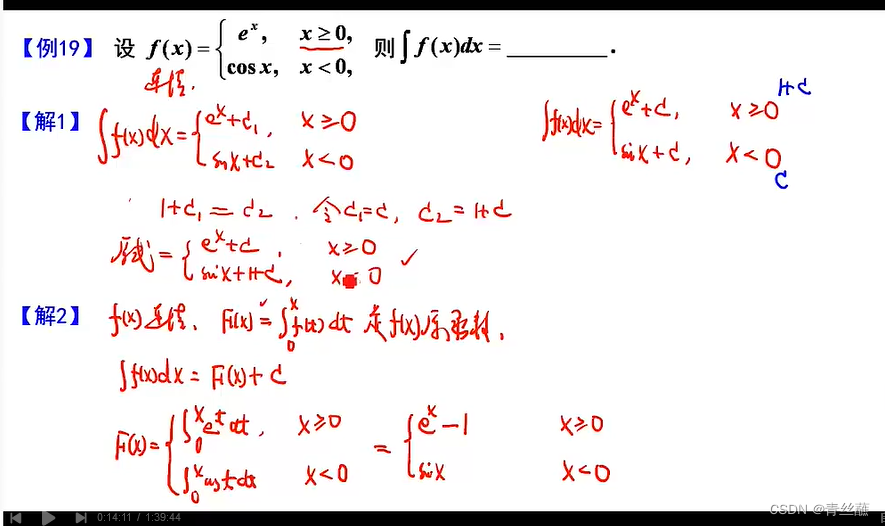 【例19】 设 f(x) = { e^x, x ≥ 0, cos x, x < 0, 则 ∫ f(x)dx = ________ .
连续.
【解1】 ∫f(x)dx = { e^x+C₁, x ≥ 0
sinx+C₂ x < 0
∫f(x)dx = { e^x+C, x ≥ 0 1+C
sinx+C, x < 0 C
1+C₁ = C₂ . 令C₁=C, C₂ = 1+C
原式 = { e^x+C, x ≥ 0 ✓
sinx+1+C, x < 0
【解2】 f(x) 连续, F(x) = ∫₀^x f(t) dt 是 f(x) 原函数,
∫f(x)dx = F(x) + C
F(x) = { ∫₀^x e^t dt, x ≥ 0 = { e^x − 1 x ≥ 0
∫₀^x cost dt x < 0 sinx x < 0
0:14:11 / 1:39:44
CSDN @青丝蘸